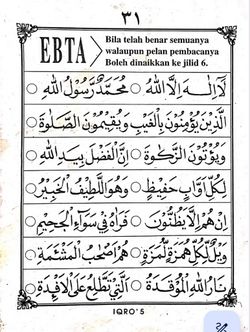 ٣١
EBTA
Bila telah benar semuanya
walaupun pelan pembacanya
Boleh dinaikkan ke jilid 6.
لَآ اِلٰهَ اِلَّا اللهُ ○ مُحَمَّدٌ رَّسُوْلُ اللهِ ○
الَّذِيْنَ يُؤْمِنُوْنَ بِالْغَيْبِ وَيُقِيْمُوْنَ الصَّلٰوةَ
وَيُؤْتُوْنَ الزَّكٰوةَ ○ اِنَّ الْفَضْلَ بِيَدِ اللهِ ○
لِكُلِّ اَوَّابٍ حَفِيْظٍ ○ وَهُوَ اللَّطِيْفُ الْخَبِيْرُ ○
اِنْ هُمْ اِلَّا يَظُنُّوْنَ ○ فَرَاٰهُ فِيْ سَوَآءِ الْجَحِيْمِ ○
وَيْلٌ لِّكُلِّ هُمَزَةٍ لُّمَزَةٍ ○ هُمْ اَصْحٰبُ الْمَشْئَمَةِ ○
نَارُ اللهِ الْمُوْقَدَةُ ○ الَّتِيْ تَطَّلِعُ عَلَى الْاَفْئِدَةِ ○
IQRO' 5